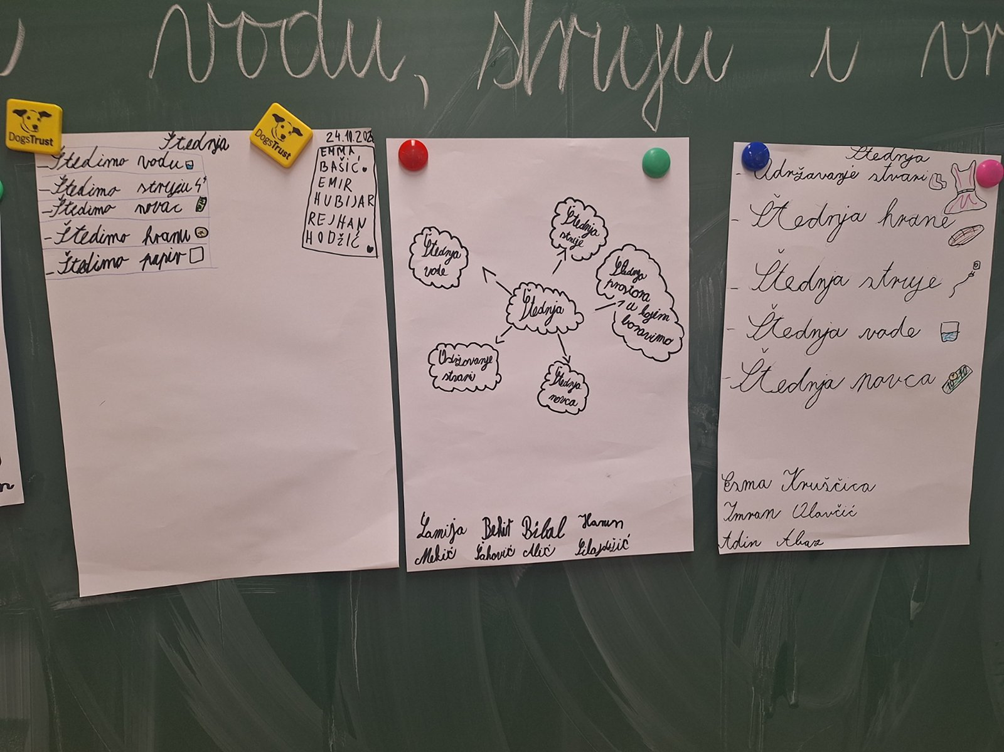 vodu, struju i
DogsTrust
DogsTrust
Štednja
24.10.
- Štedimo vodu
- Štedimo struju
- Štedimo novac
- Štedimo hranu
- Štedimo papir
EMMA
BAŠIĆ
EMIR
HUBIJAR
REJHAN
HODŽIĆ
Štednja
vode
Štednja
struje
Štednja
prostora
u kojem
boravimo
Štednja
Održavanje
stvari
Štednja
novca
Lamija Bekir Bilal Harun
Mekić Šahović Alić
Štednja
- Održavanje stvari
- Štednja hrane
- Štednja struje
- Štednja vode
- Štednja novca
Esma Kruščica
Imran
Adin